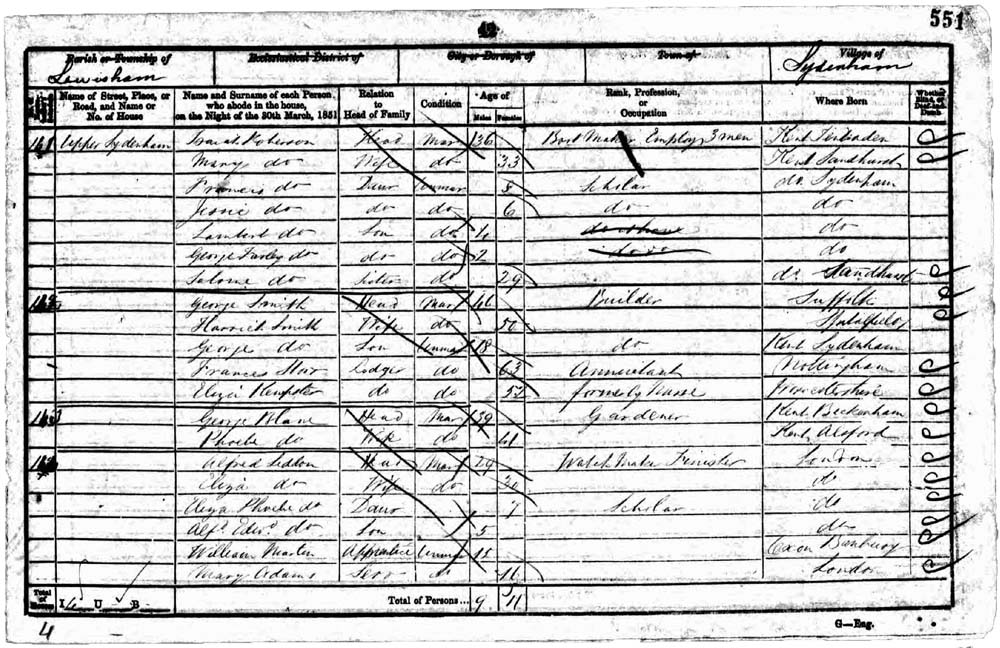 551
42
Parish or Township of Ecclesiastical District of City or Borough of Town of Village of
Lewisham Sydenham
Name of Street, Place, or Road, and Name or No. of House Name and Surname of each Person who abode in the house, on the Night of the 30th March, 1851 Relation to Head of Family Condition Age of Males Females Rank, Profession, or Occupation Where Born Whether Blind, or Deaf-and-Dumb
161 Upper Sydenham Head Mar 36 Boot Maker Employg 3 men Kent
Mary do Wife do 33 Kent Sandhurst
Frances do Daur Unmar 8 Scholar do Sydenham
Jessie do do do 6 do do
Lambert do Son do 4 do
George do do do 2 do
Salome do Sister do 29 do Sandhurst
George Smith Head Mar 46 Builder Suffolk
Harriet Smith Wife do 50
George do Son Unmar 18 do Kent Sydenham
Frances Lodger do 63 Annuitant Nottingham
Eliza Kempster do do 52 formerly Nurse Worcestershire
163 George Head Mar 39 Gardener Kent Beckenham
Phoebe do Wife do 61 Kent
Alfred Head Mar 29 Watch Maker Finisher London
Eliza do Wife do do
Eliza Phoebe do Daur 7 Scholar do
Alfd Edwd do Son 5 do
William Martin Apprentice Unmar 15 Oxon Banbury
Mary Adams Serv do 11 London
Total of Houses I 4 U B Total of Persons... 9 11
4
G—Eng.